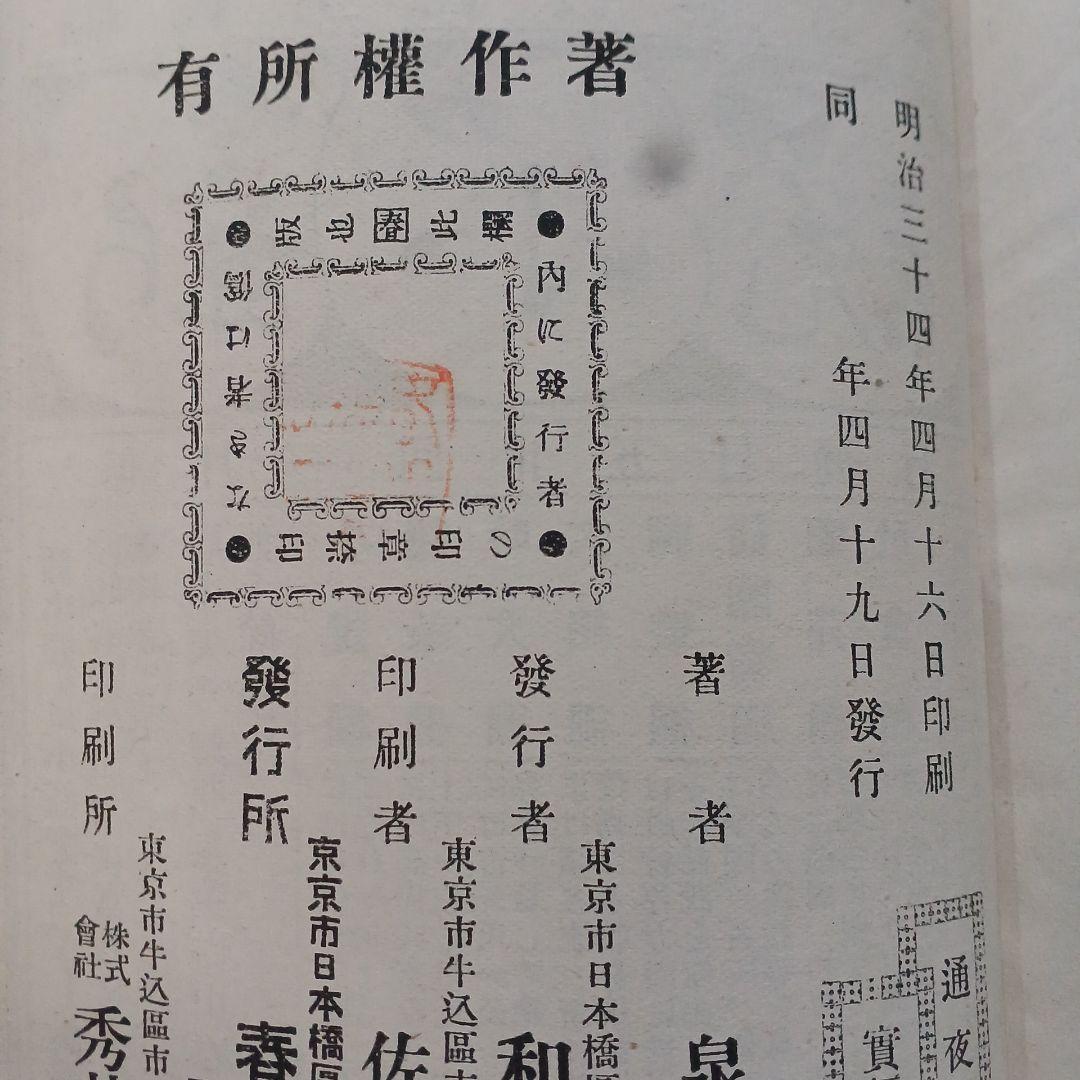 著作權所有
明治三十四年四月十六日印刷
同年四月十九日發行
內に發行者
の印章捺印
なき者は僞
版也 春 此欄
著者
泉
發行者
東京市日本橋區
和
印刷者
東京市牛込區市
佐
發行所
京京市日本橋區
春
印刷所
東京市牛込區市
株式會社
秀
通夜
實